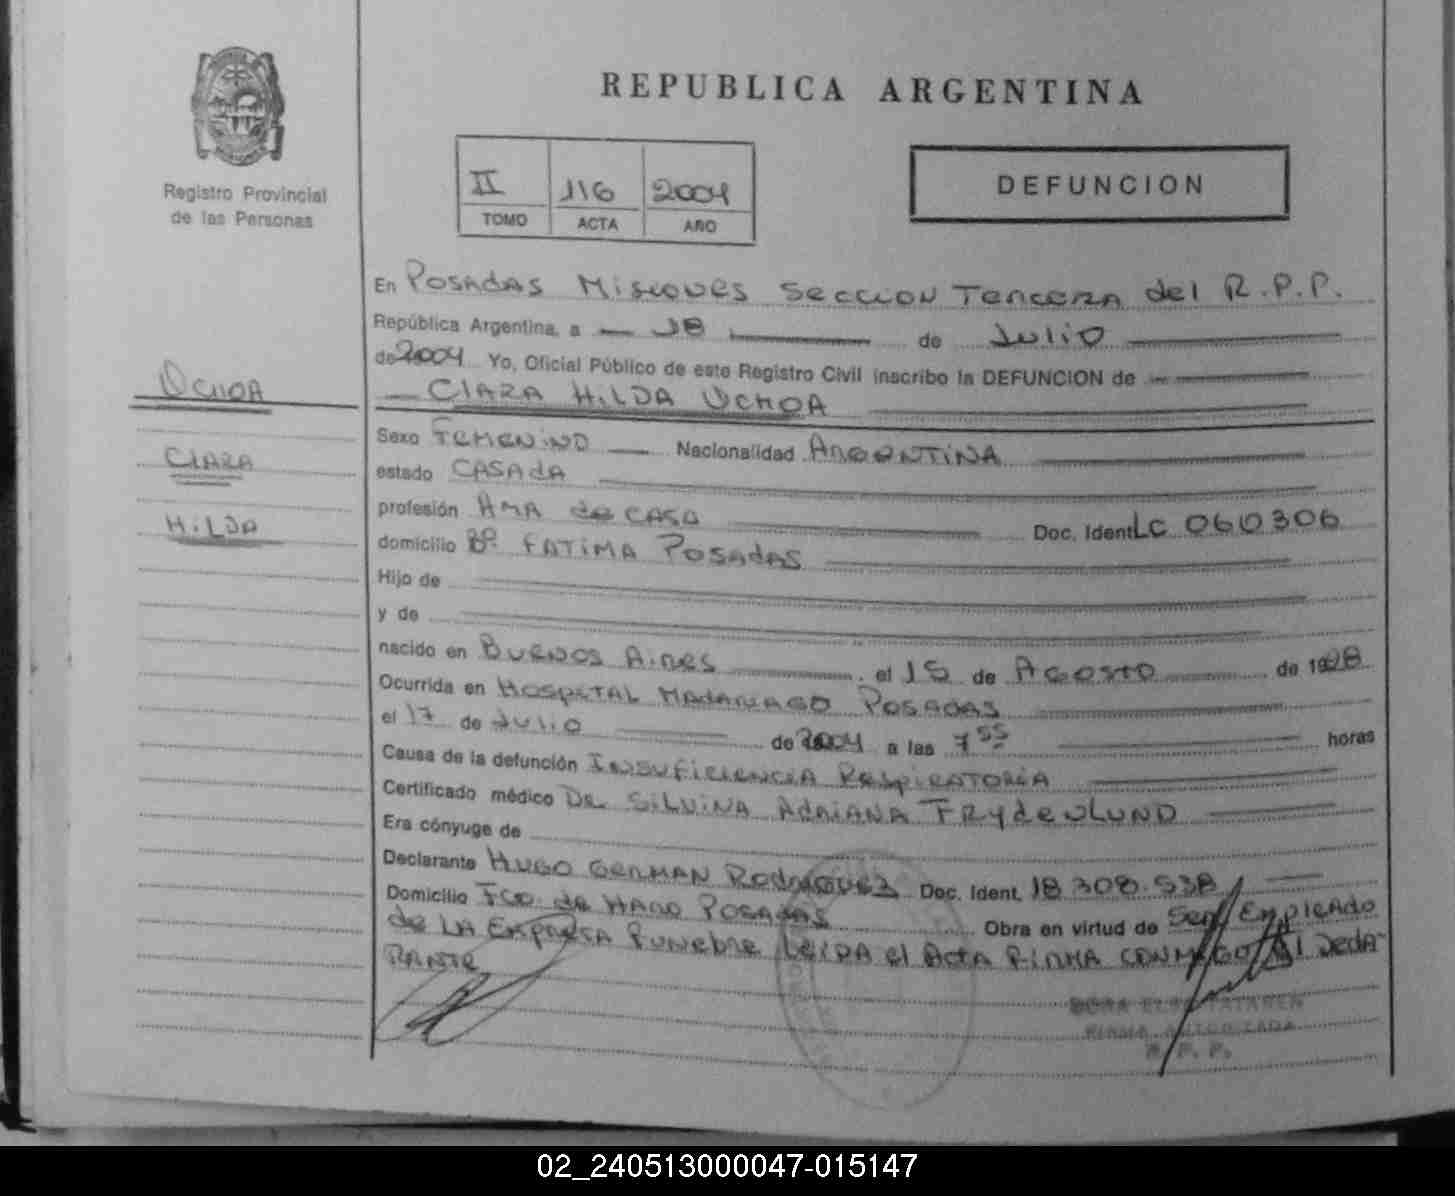 REPUBLICA ARGENTINA
Registro Provincial
de las Personas
II 116 2004
TOMO ACTA AÑO
DEFUNCION
En Posadas Misiones Seccion Tercera del R.P.P.
República Argentina, a 18 de Julio
de 2004 Yo, Oficial Público de este Registro Civil inscribo la DEFUNCION de
Clara Hilda Ochoa
Ochoa
Clara
Hilda
Sexo Femenino Nacionalidad Argentina
estado Casada
profesión Ama de casa Doc. Ident. LC 060306
domicilio Bº Fatima Posadas
Hijo de
y de
nacido en Buenos Aires el 15 de Agosto de 19
Ocurrida en Hospital Madariaga Posadas
el 17 de Julio de 2004 a las 7 55 horas
Causa de la defunción Insuficiencia Respiratoria
Certificado médico Dr Silvina Adriana Frydenlund
Era cónyuge de
Declarante Hugo German Rodriguez Doc. Ident. 18.308.538
Domicilio Fco. de Haro Posadas Obra en virtud de Ser Empleado
de la Empresa Funebre Leida el Acta Firma conmigo el Decla-
rante
FIRMA AUTORIZADA
R. P. P.
02_240513000047-015147